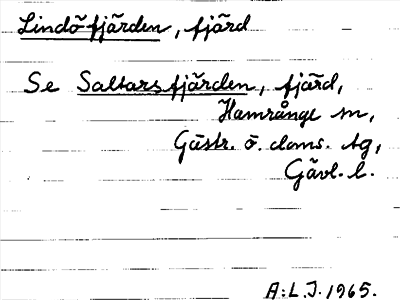 Lindöfjärden, fjärd
Se Saltarsfjärden, fjärd,
Hamrånge sn,
Gästr. ö. doms. tg,
Gävl. l.
A.L.J. 1965.